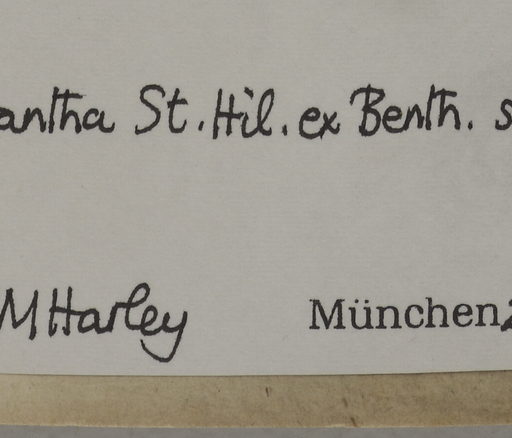 antha St. Hil. ex Benth. s
M Harley München